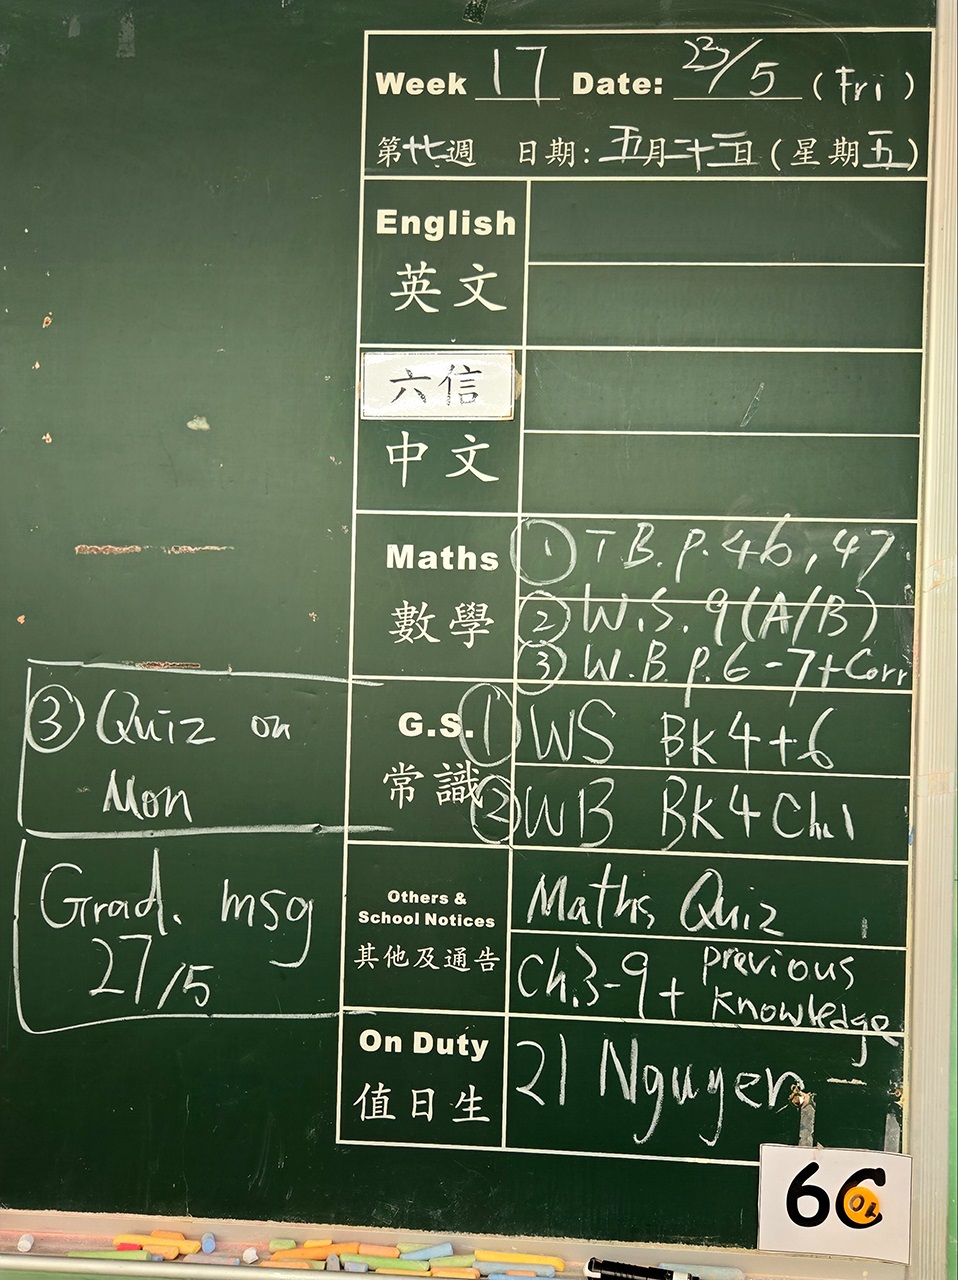 Week 17 Date: 23/5 (Fri)
第十七週 日期: 五月二十三日 (星期五)
English
英文
六信
中文
Maths
數學
① T.B. p. 46, 47
② W.S. 9 (A/B)
③ W.B. p. 6-7 + Corr
G.S.
常識
① WS BK 4+6
② WB BK4 Ch.1
③ Quiz on
Mon
Grad. msg
27/5
Others &
School Notices
其他及通告
Maths Quiz
Ch.3-9 + previous
knowledge
On Duty
值日生
21 Nguyen
6C